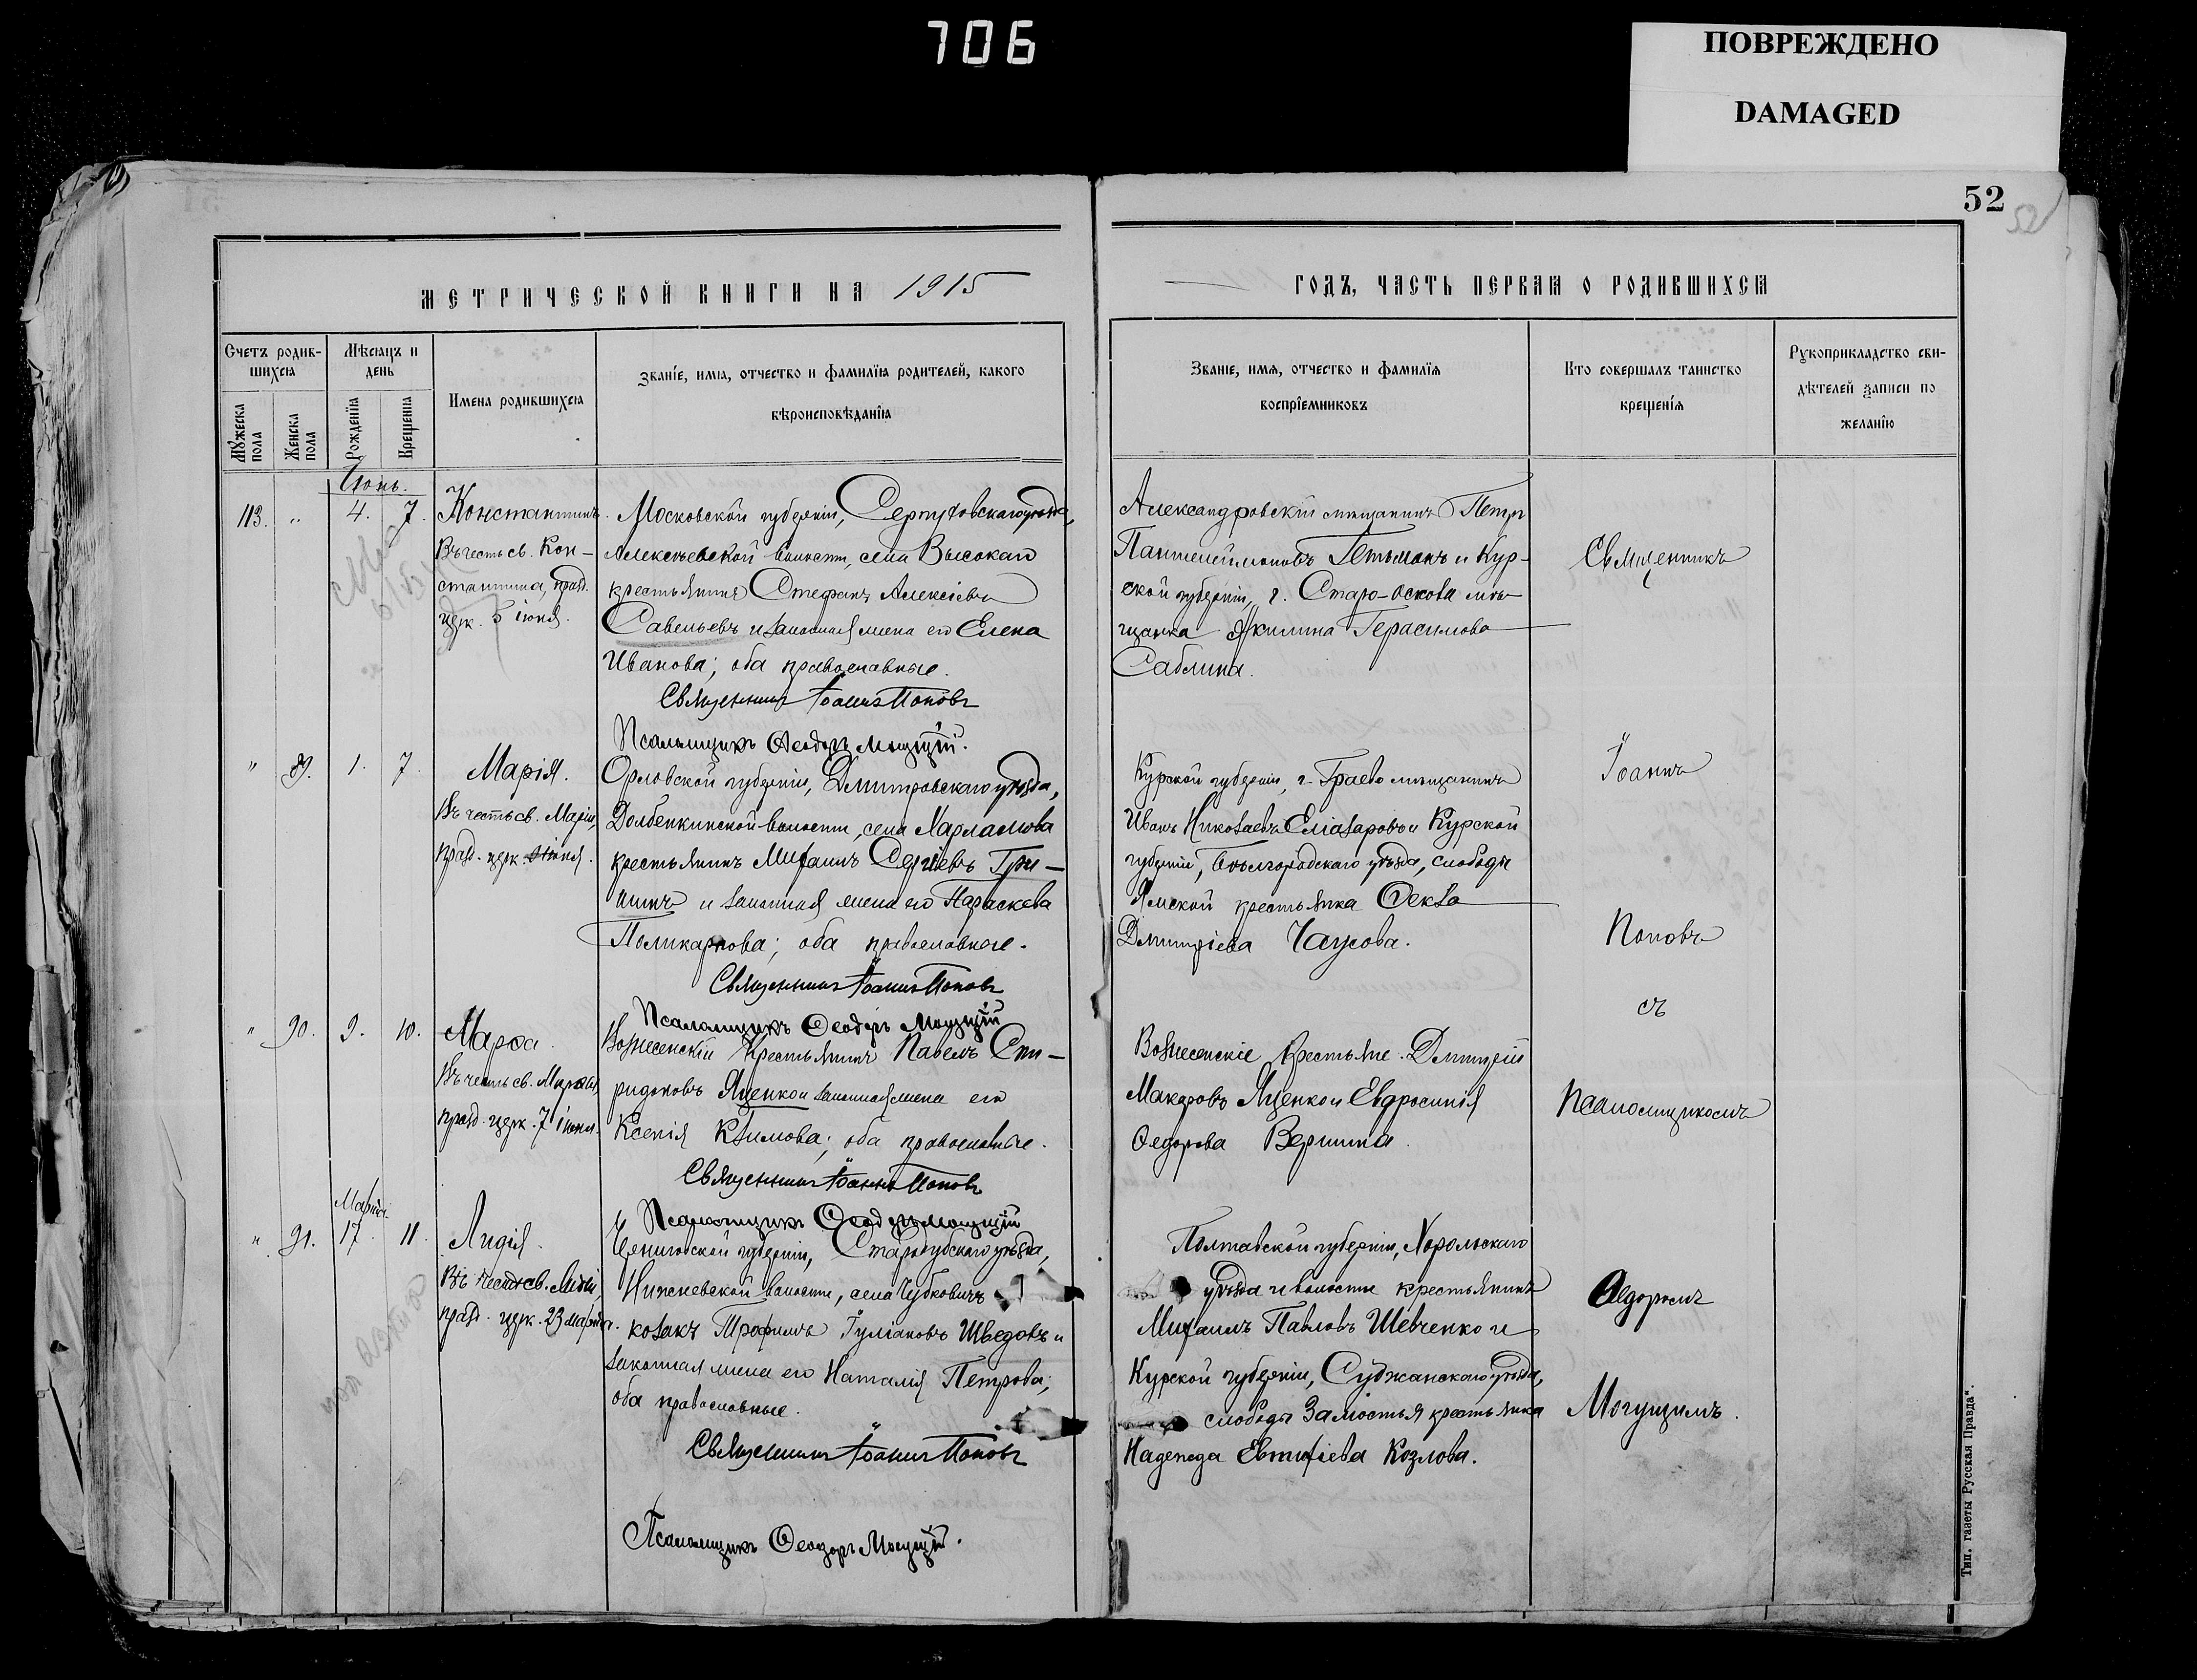 706
ПОВРЕЖДЕНО
DAMAGED
52
52
МЕТРИЧЕСКОЙ КНИГИ НА 1915
ГОДЪ, ЧАСТЬ ПЕРВАЯ О РОДИВШИХСЯ
Счетъ родив-
шихся
Мѣсяцъ и
день
Мужеска пола
Женска пола
Рожденія
Крещенія
Имена родившихся
Званіе, имя, отчество и фамилія родителей, какого
вѣроисповѣданія
Званіе, имя, отчество и фамилія
воспріемниковъ
Кто совершалъ таинство
крещенія
Рукоприкладство сви-
дѣтелей записи по
желанію
Іюнь.
113. " 4. 7.
Константинъ.
Въ честь св. Кон-
стантина, празд.
церк. 5 іюня.
Московской губерніи, Серпуховскаго уѣзда,
Алексѣевской волости, села Высокаго
крестьянинъ Стефанъ Алексіевъ
Савельевъ и законная жена его Елена
Иванова; оба православные.
Священникъ Іоаннъ Поповъ
Псаломщикъ Ѳеодоръ Могущій.
Александровскій мѣщанинъ Петръ
Пантелеймоновъ Гетьманъ и Кур-
ской губерніи, г. Старо-Оскола мѣ-
щанка Акилина Герасимова
Саблина.
" 89. 1. 7.
Марія.
Въ честь св. Маріи,
празд. церк. іюня.
Орловской губерніи, Дмитровскаго уѣзда,
Долбенкинской волости, села Харламова
крестьянинъ Михаилъ Сергіевъ Гри-
шинъ и законная жена его Параскева
Поликарпова; оба православные.
Священникъ Іоаннъ Поповъ
Псаломщикъ Ѳеодоръ Могущій
Курской губерніи, г. мѣщанинъ
Иванъ Николаевъ Еліазаровъ и Курской
губерніи, Бѣлгородскаго уѣзда, слободы
Ямской крестьянка Ѳекла
Дмитріева Чаусова.
" 90. 9. 10.
Марѳа.
Въ честь св. Марѳы,
празд. церк. 7 іюня.
Вознесенскій крестьянинъ Павелъ Спи-
ридоновъ Яценко и законная жена его
Ксенія Климова; оба православные.
Священникъ Іоаннъ Поповъ
Псаломщикъ Ѳеодоръ Могущій
Вознесенскіе крестьяне Дмитрій
Макаровъ Яценко и Евфросинія
Ѳедорова Вершина.
Марта
" 91. 17. 11.
Лидія.
Въ честь св. Лидіи,
празд. церк. 23 марта.
Черниговской губерніи, Стародубскаго уѣзда,
волости, села Чубковичъ
козакъ Трофимъ Іуліановъ Шведовъ и
законная жена его Наталія Петрова;
оба православные.
Священникъ Іоаннъ Поповъ
Псаломщикъ Ѳеодоръ Могущій.
Полтавской губерніи, Хорольскаго
уѣзда и волости крестьянинъ
Михаилъ Павловъ Шевченко и
Курской губерніи, Суджанскаго уѣзда,
слободы Замостья крестьянка
Надежда Евтихіева Козлова.
Священникъ
Іоаннъ
Поповъ
съ
псаломщикомъ
Ѳедоромъ
Могущимъ.
Тип. газеты Русская Правда".